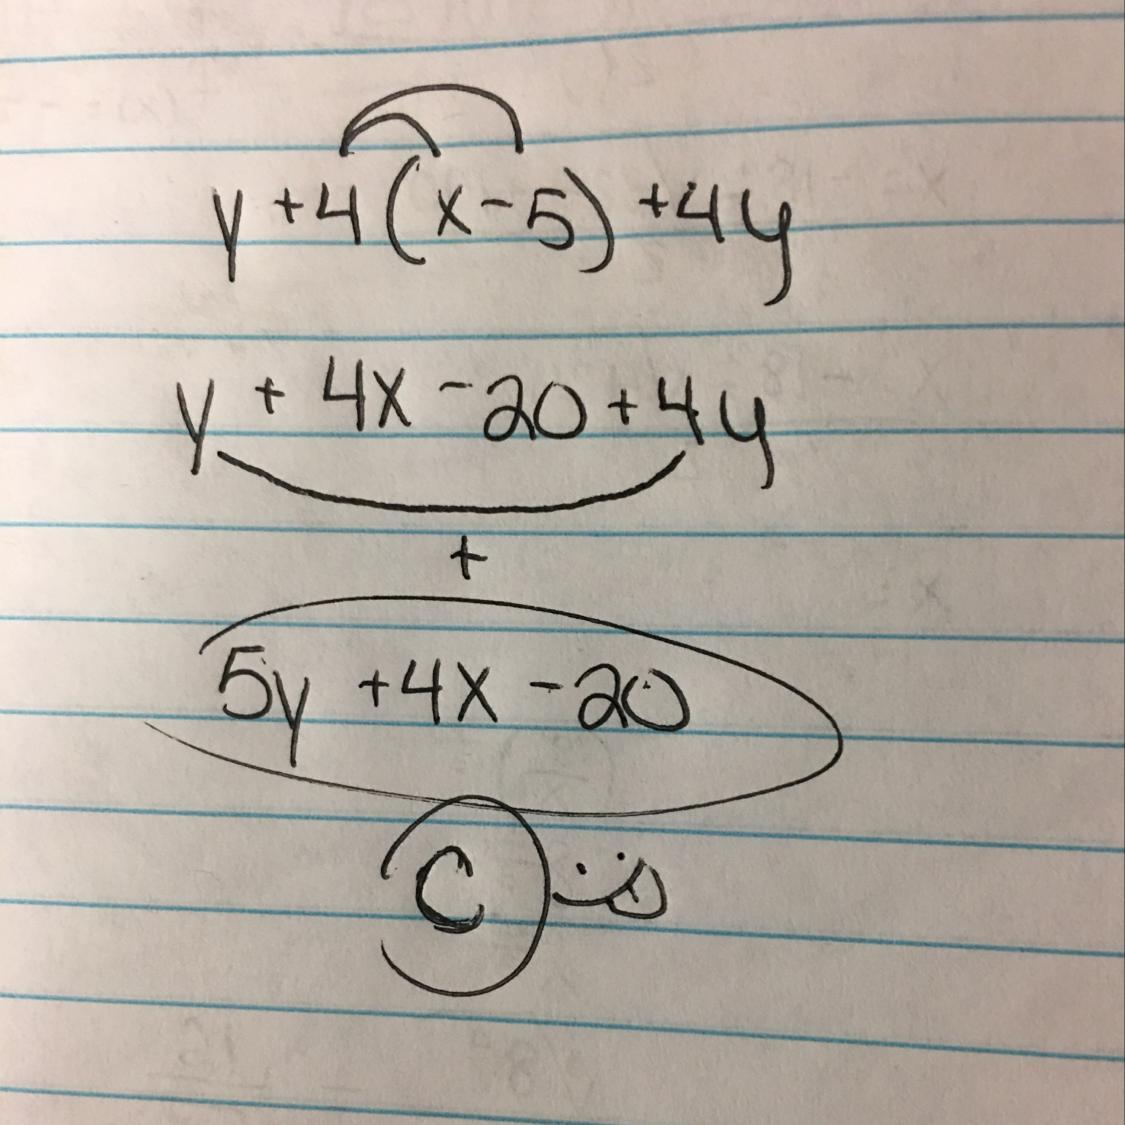 y + 4(x - 5) + 4y
y + 4x - 20 + 4y
+
5y + 4x - 20
C